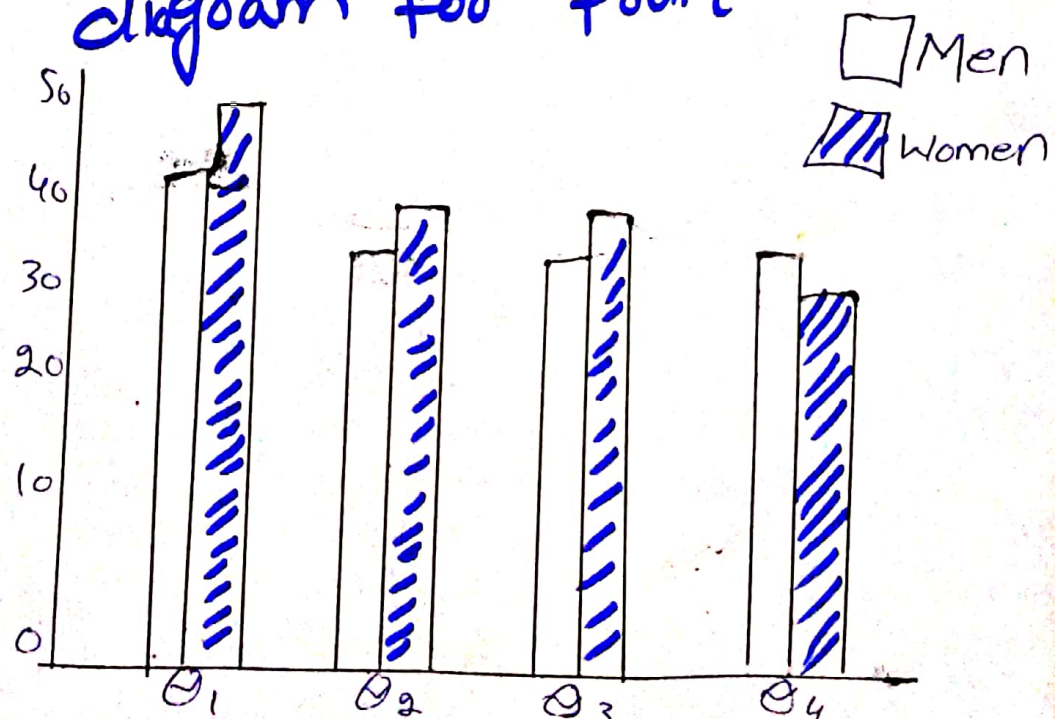 diagoam foo foari
Men
Women
50
40
30
20
10
0
Q1 Q2 Q3 Q4